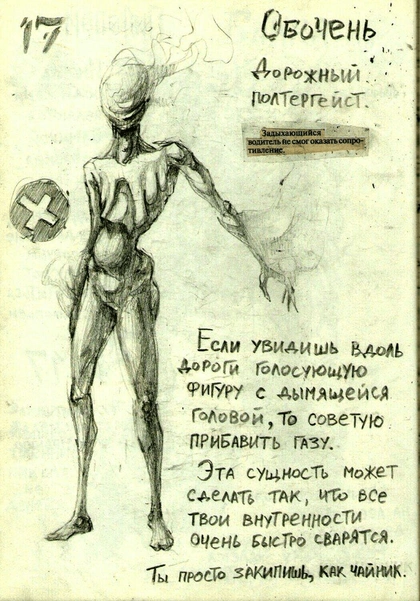 17
Обочень
Дорожный
полтергейст.
Задыхающийся
водитель не смог оказать сопро-
тивление.
Если увидишь вдоль
дороги голосующую
фигуру с дымящейся
головой, то советую
прибавить газу.
Эта сущность может
сделать так, что все
твои внутренности
очень быстро сварятся.
Ты просто закипишь, как чайник.